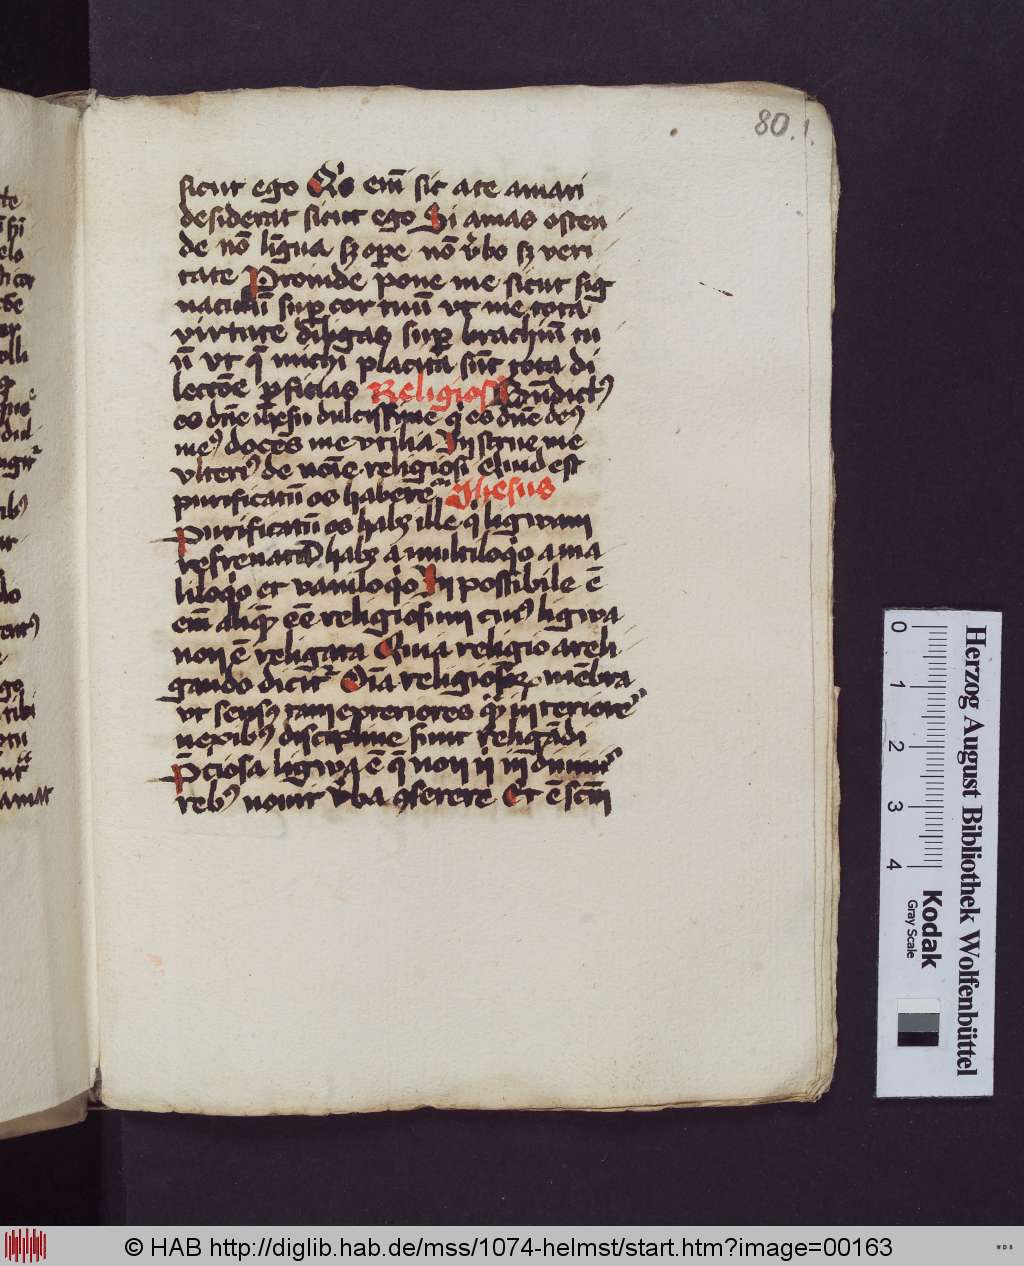 80.1.
sicut ego Qs em̄ sic a te amari
desiderat sicut ego Si amas osten
de nō līgua sꝫ oꝑe nō v̓bo sꝫ veri
tate Proinde pone me sicut sig
naculū suꝑ cor tuū vt me tota
virtute diligas suꝑ brachiū tu
ū vt q̄ michi placita sūt tota di
lectōe ꝑficias Religiosꝰ Bn̄dictꝰ
es dn̄e ihesu dulcissime q̇ es dn̄e deꝰ
meꝰ doces me vtilia Instrue me
vlteriꝰ de noīe religiosi qͥd est
purificatū os habere Ihesus
Purificatū os habꝫ ille q̇ ligwam
refrenatā habꝫ a multiloq̇o a ma
liloq̇o et vaniloq̇o Inpossibile ē
em̄ aliquē eē religiosum cuiꝰ ligwa
non ē religata Quia religio a reli
gando dicit̄ Oīa religiosoꝝ mēbra
vt sensꝰ tam exteriores qͣꝫ interiores
nexibꝰ discipline sunt religādi
P̄ciosa ligwa ē q̄ non n̄ in diuinis
rebꝰ nouit v̓ba ꝯferere Et ē scm̄
0 1 2 3 4
Kodak
Gray Scale
Herzog August Bibliothek Wolfenbüttel
© HAB http://diglib.hab.de/mss/1074-helmst/start.htm?image=00163